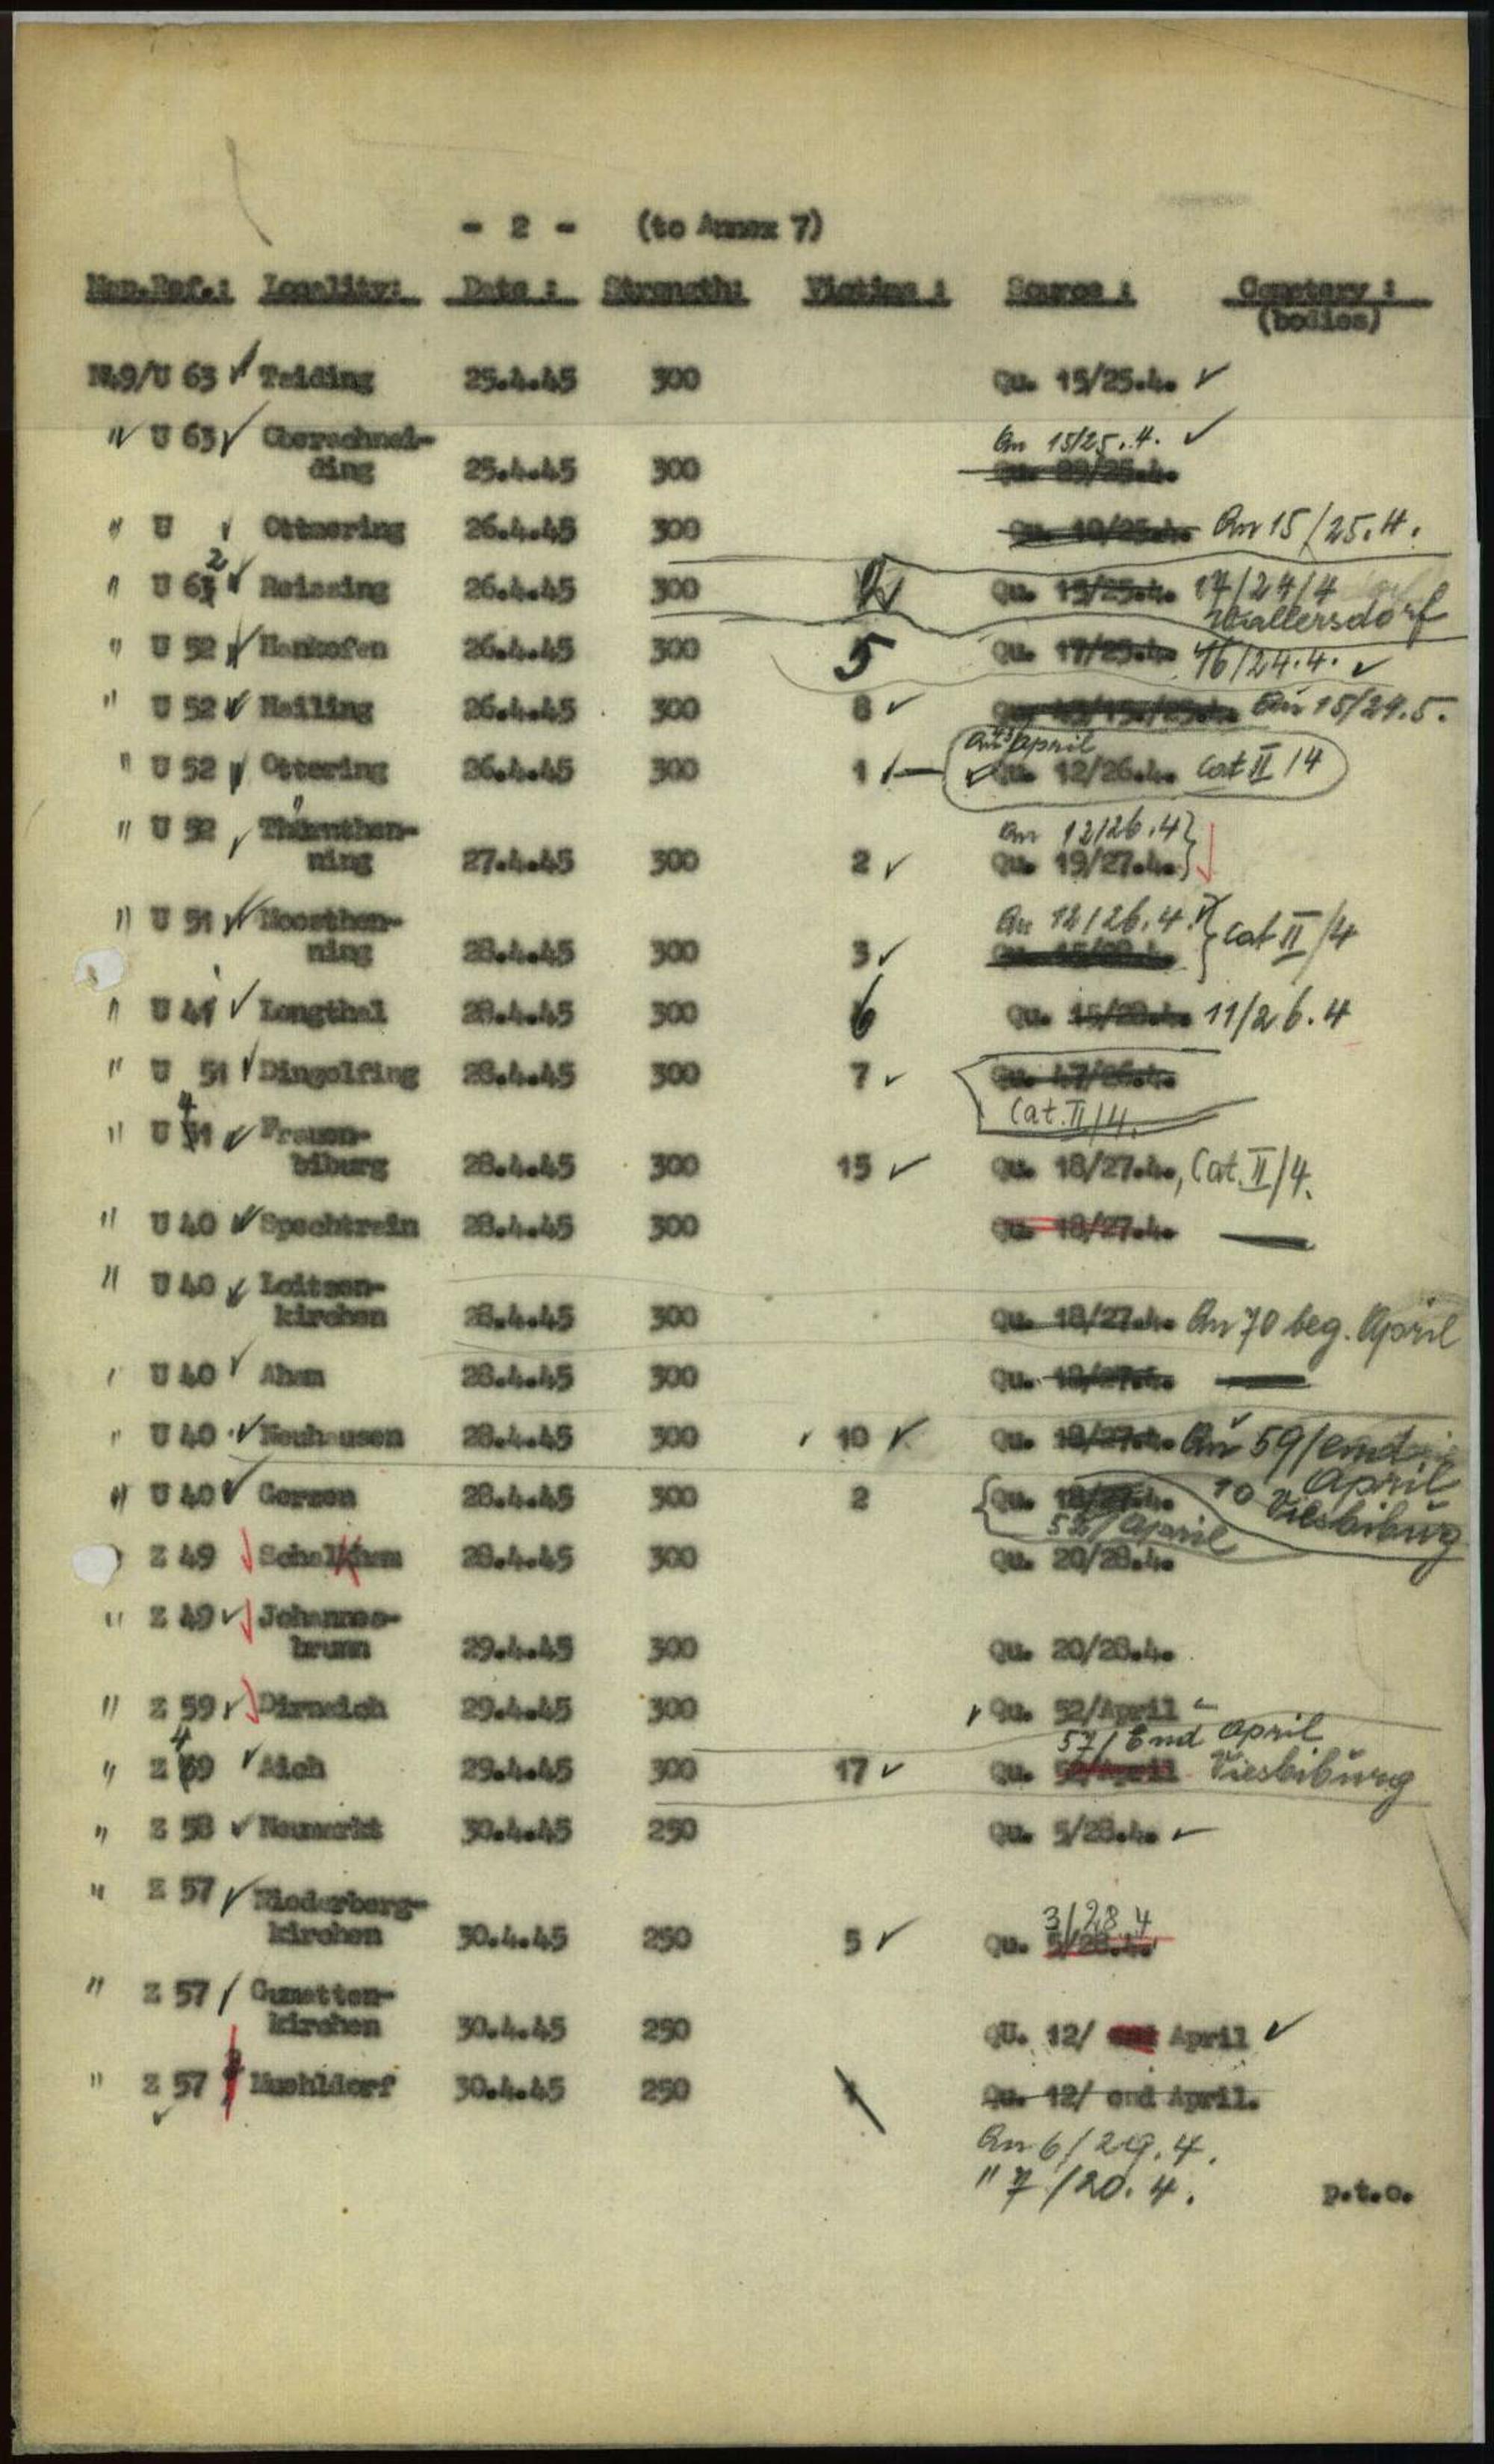 - 2 - (to Annex 7)
Map.Ref.: Locality: Date : Strength: Victims : Source : Cemetery :
(bodies)
N49/U 63 Taiding 25.4.45 300 Qu. 15/25.4.
" U 63 Oberschnei- An 15/25.4.
ding 25.4.45 300 Qu. 29/25.4.
" U Ottmering 26.4.45 300 An 15/25.4.
2
" U 63 Reissing 26.4.45 300 Qu. 15/25.4. 17/24/4
Wallersdorf
" U 52 Hankofen 26.4.45 300 5 Qu. 17/25.4. 16/24.4.
" U 52 Hailing 26.4.45 300 8 An 15/29.5.
An 43/April
" U 52 Ottering 26.4.45 300 1 Qu. 12/26.4. Cat II/4
" U 52 Thürnthen- An 12/26.4
ning 27.4.45 300 2 Qu. 19/27.4.
" U 51 Moosthen- An 12/26.4.
ning 28.4.45 300 3 Cat II/4
" U 41 Lengthal 28.4.45 300 6 Qu. 15/28.4. 11/26.4
" U 51 Dingolfing 28.4.45 300 7 Qu. 47/26.4.
Cat. II/4.
4
" U 51 Frauen-
biburg 28.4.45 300 15 Qu. 18/27.4., Cat. II/4.
" U 40 Spechtrain 28.4.45 300 Qu. 18/27.4. —
" U 40 Loitzen-
kirchen 28.4.45 300 Qu. 18/27.4. An 70 beg. April
" U 40 Aham 28.4.45 300 Qu. 18/27.4. —
" U 40 Neuhausen 28.4.45 300 10 Qu. 18/27.4. An 59/end
April
" U 40 Gerzen 28.4.45 300 2 Qu. 18/27.4. 10 Vilsbiburg
52/April
" Z 49 Schalkham 28.4.45 300 Qu. 20/28.4.
" Z 49 Johannes-
brunn 29.4.45 300 Qu. 20/28.4.
" Z 59 Dirnaich 29.4.45 300 Qu. 52/April
4 57/End April
" Z 59 Aich 29.4.45 300 17 Qu. 52/April Viesbiburg
" Z 58 Neumarkt 30.4.45 250 Qu. 5/28.4.
" Z 57 Niederberg- 3/28 4
kirchen 30.4.45 250 5 Qu. 5/28.4.
" Z 57 Gumatten-
kirchen 30.4.45 250 QU. 12/ end April
" Z 57 Muehldorf 30.4.45 250 Qu. 12/ end April.
An 6/29.4.
" 7/20.4.
p.t.o.